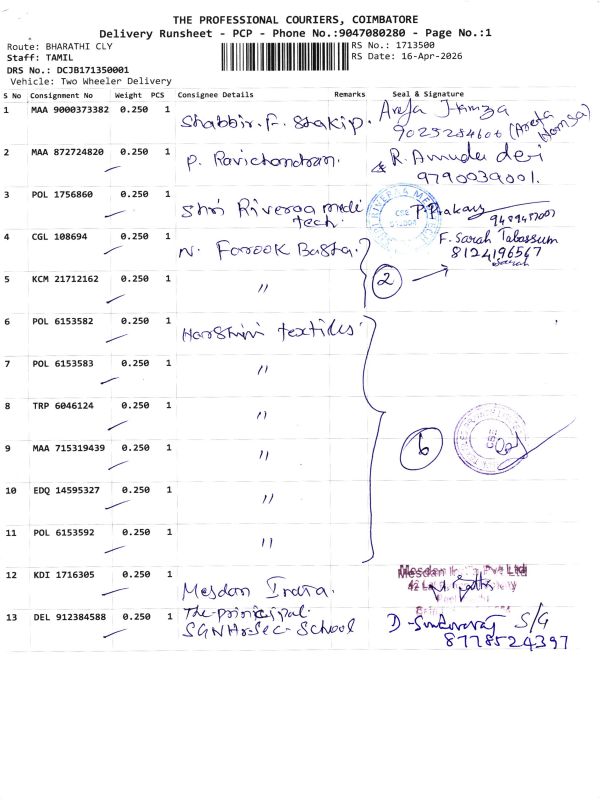 THE PROFESSIONAL COURIERS, COIMBATORE
Delivery Runsheet - PCP - Phone No.:9047080280 - Page No.:1
Route: BHARATHI CLY
RS No.: 1713500
Staff: TAMIL
RS Date: 16-Apr-2026
DRS No.: DCJB171350001
Vehicle: Two Wheeler Delivery
S No Consignment No Weight PCS Consignee Details Remarks Seal & Signature
1 MAA 9000373382 0.250 1 Shabbir. F. Shakip. Arefa Hamza
9025284606 (Arefa Hamsa)
2 MAA 872724820 0.250 1 P. Ravichandran. R. Amudha devi
9790039001.
3 POL 1756860 0.250 1 Shri Riveraa medi tech. P. Prakash
4 CGL 108694 0.250 1 N. Farook Basha. F. Sarah Tabassum
8124196567
5 KCM 21712162 0.250 1 〃 2
6 POL 6153582 0.250 1 Harshini textiles.
7 POL 6153583 0.250 1 〃
8 TRP 6046124 0.250 1 〃
9 MAA 715319439 0.250 1 〃 6
10 EDQ 14595327 0.250 1 〃
11 POL 6153592 0.250 1 〃
12 KDI 1716305 0.250 1 Mesdan India. Mesdan Pvt Ltd
13 DEL 912384588 0.250 1 The principal.
SGNHr-Sec-School D-Sundararaj S/G
8778524397